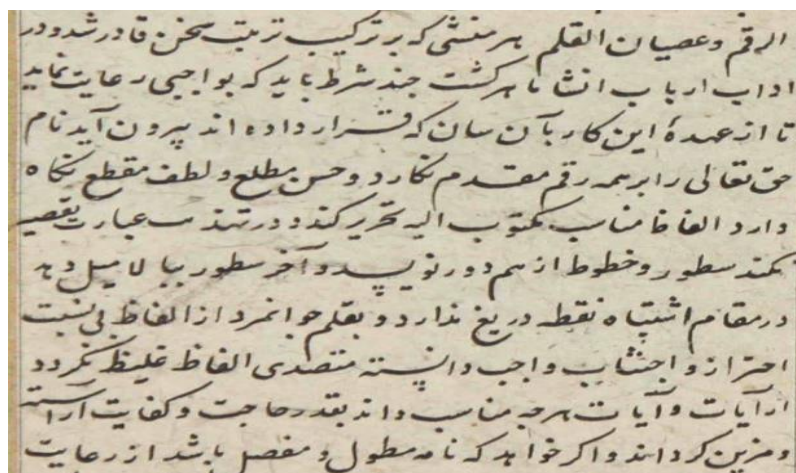 الرقم و عصیان القلم هر منشی که بر ترکیب تربیت سخن قادر شد و در
اداب ارباب انشا ماهر کشت چند شرط باید که بواجبی رعایت نماید
تا از عهدهٔ این کار بآن سان که قرار داده اند بیرون آید نام
حق تعالی را بر همه رقم مقدم نکارد و حسن مطلع و لطف مقطع نکاه
دارد الفاظ مناسب مکتوب الیه تحریر کند و در تهذیب عبارت تقصیر
نکند سطور و خطوط از هم دور نویسد و آخر سطور ببالا میل دهد
در مقام اشتباه نقطه دریغ ندارد و بقلم جوانمرد از الفاظ بی نسبت
احتراز و اجتناب واجب دانسته متصدی الفاظ غلیظ نکردد
از آیات و آیات هرچه مناسب داند بقدر حاجت و کفایت آراسته
و مزین کرداند و اکر خواهد که نامه مطول و مفصل باشد از رعایت